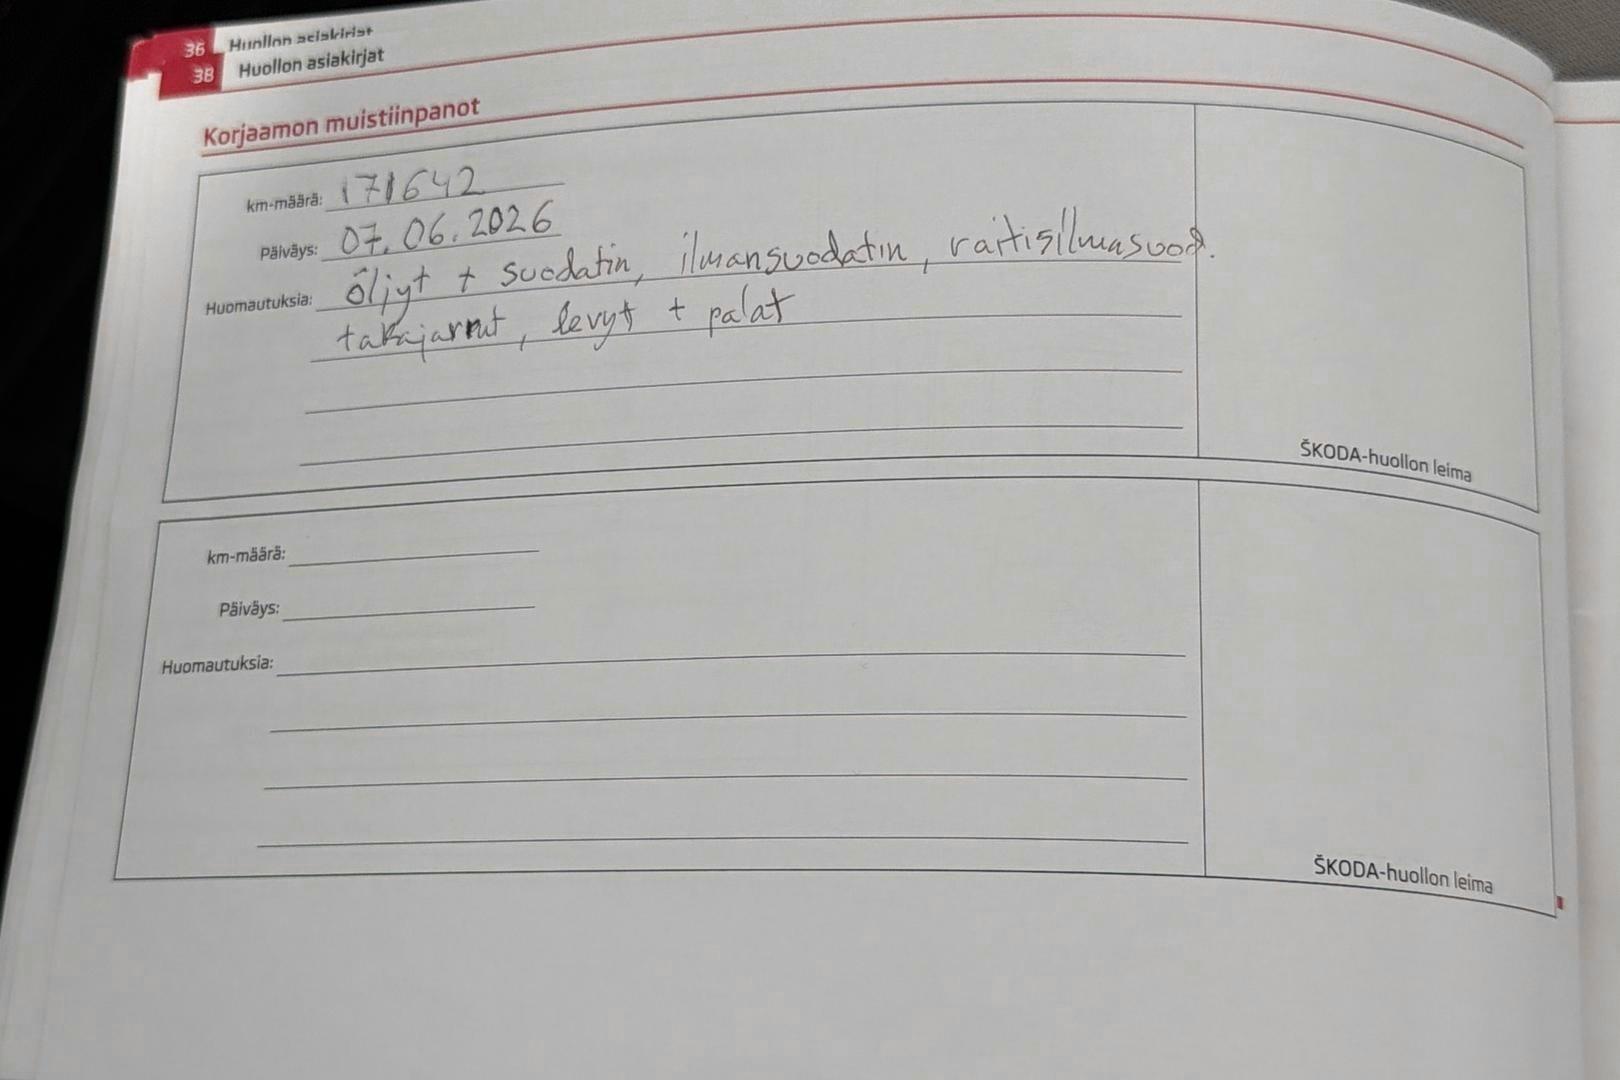 36 Huollon asiakirjat
38 Huollon asiakirjat
Korjaamon muistiinpanot
km-määrä: 171642
Päiväys: 07.06.2026
Huomautuksia: öljyt + suodatin, ilmansuodatin, raitisilmasuod.
takajarrut, levyt + palat
ŠKODA-huollon leima
km-määrä:
Päiväys:
Huomautuksia:
ŠKODA-huollon leima